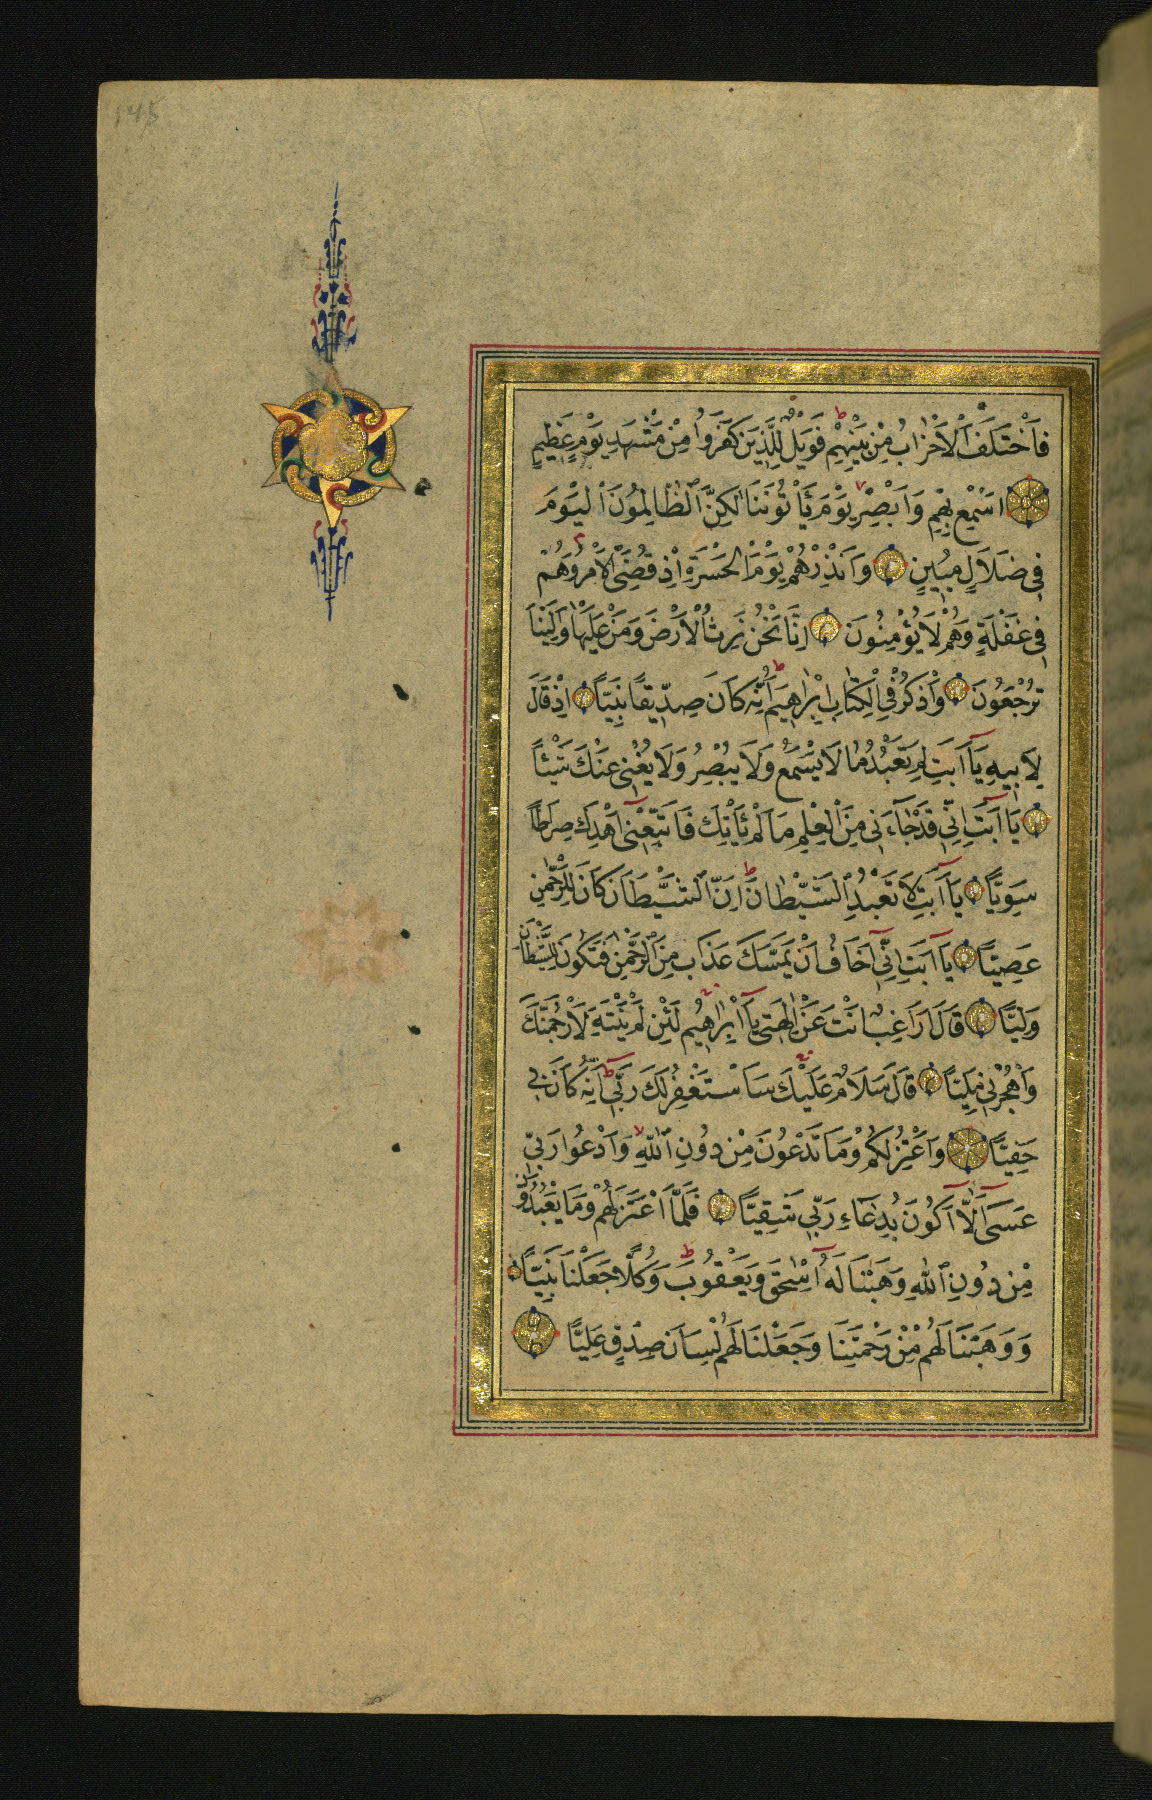 145
فَاَخْتَلَفَ الْاَحْزَابُ مِنْ بَيْنِهِمْ فَوَيْلٌ لِلَّذِينَ كَفَرُوا مِنْ مَشْهَدِ يَوْمٍ عَظِيمٍ
اَسْمِعْ بِهِمْ وَاَبْصِرْ يَوْمَ يَأْتُونَنَا لٰكِنِ الظَّالِمُونَ الْيَوْمَ
فِي ضَلَالٍ مُبِينٍ وَاَنْذِرْهُمْ يَوْمَ الْحَسْرَةِ اِذْ قُضِيَ الْاَمْرُ وَهُمْ
فِي غَفْلَةٍ وَهُمْ لَا يُؤْمِنُونَ اِنَّا نَحْنُ نَرِثُ الْاَرْضَ وَمَنْ عَلَيْهَا وَاِلَيْنَا
تُرْجَعُونَ وَاذْكُرْ فِي الْكِتَابِ اِبْرٰهِيمَ اِنَّهُ كَانَ صِدِّيقًا نَبِيًّا اِذْ قَالَ
لِاَبِيهِ يَآ اَبَتِ لِمَ تَعْبُدُ مَا لَا يَسْمَعُ وَلَا يُبْصِرُ وَلَا يُغْنِي عَنْكَ شَيْئًا
يَآ اَبَتِ اِنِّي قَدْ جَآءَنِي مِنَ الْعِلْمِ مَا لَمْ يَأْتِكَ فَاتَّبِعْنِي اَهْدِكَ صِرَاطًا
سَوِيًّا يَآ اَبَتِ لَا تَعْبُدِ الشَّيْطَانَ اِنَّ الشَّيْطَانَ كَانَ لِلرَّحْمٰنِ
عَصِيًّا يَآ اَبَتِ اِنِّي اَخَافُ اَنْ يَمَسَّكَ عَذَابٌ مِنَ الرَّحْمٰنِ فَتَكُونَ لِلشَّيْطَانِ
وَلِيًّا قَالَ اَرَاغِبٌ اَنْتَ عَنْ اٰلِهَتِي يَآ اِبْرٰهِيمُ لَئِنْ لَمْ تَنْتَهِ لَاَرْجُمَنَّكَ
وَاهْجُرْنِي مَلِيًّا قَالَ سَلَامٌ عَلَيْكَ سَاَسْتَغْفِرُ لَكَ رَبِّي اِنَّهُ كَانَ بِي
حَفِيًّا وَاَعْتَزِلُكُمْ وَمَا تَدْعُونَ مِنْ دُونِ اللّٰهِ وَاَدْعُوا رَبِّي
عَسٰى اَلَّآ اَكُونَ بِدُعَآءِ رَبِّي شَقِيًّا فَلَمَّا اعْتَزَلَهُمْ وَمَا يَعْبُدُونَ
مِنْ دُونِ اللّٰهِ وَهَبْنَا لَهُ اِسْحٰقَ وَيَعْقُوبَ وَكُلًّا جَعَلْنَا نَبِيًّا
وَوَهَبْنَا لَهُمْ مِنْ رَحْمَتِنَا وَجَعَلْنَا لَهُمْ لِسَانَ صِدْقٍ عَلِيًّا